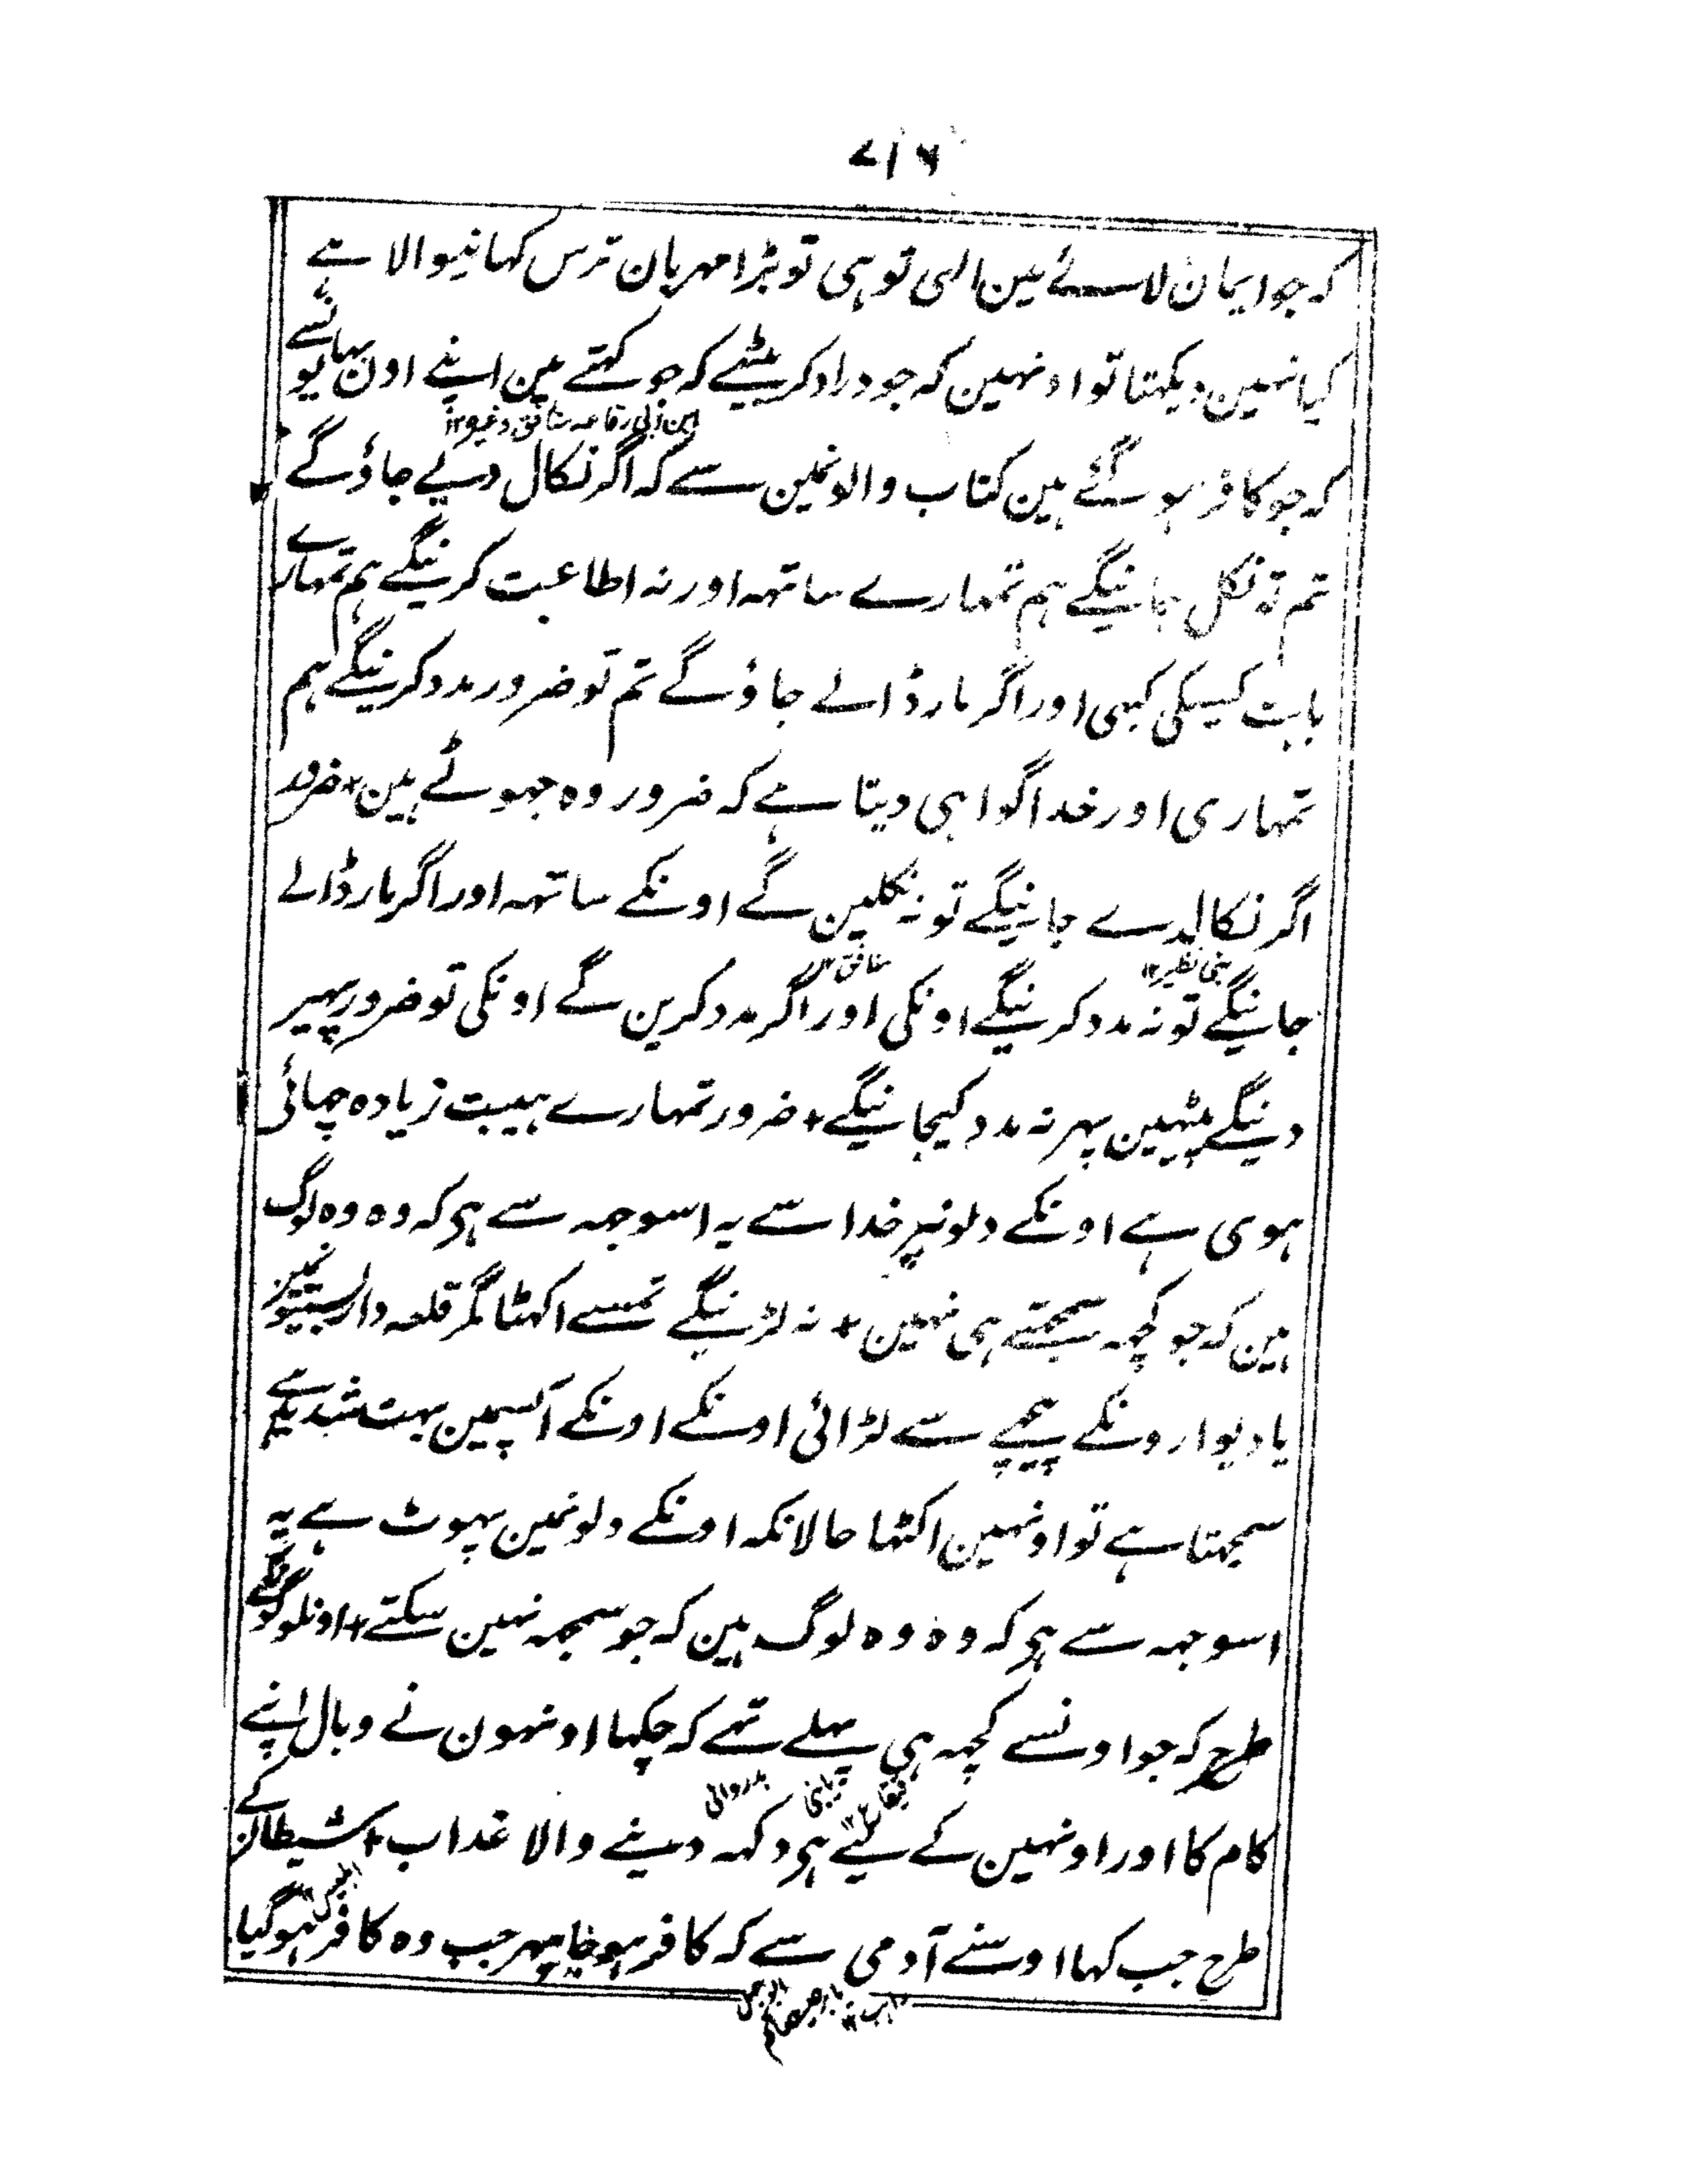 ۷۱۶
کہ جو ایمان لائے ہین الہی تو ہی تو بڑا مہربان ترس کہانیوالا ہے
کیا نہین دیکہتا تو اونہین کہ جو دراد کر بیٹہے کہ جو کہتے ہین اپنے اون بہائیونسے
کہ جو کافر ہو گئے ہین کتاب والونمین سے کہ اگر نکال دیے جاؤ گے
تم تو نکل جائینگے ہم تمہارے ساتہہ اور نہ اطاعت کرینگے ہم تمہارے
بابت کسیکی کبہی اور اگر مار ڈالے جاؤ گے تم تو ضرور مدد کرینگے ہم
تمہاری اور خدا گواہی دیتا ہے کہ ضرور وہ جہوٹے ہین + ضرور
اگر نکالدے جائینگے تو نہ نکلین گے اونکے ساتہہ اور اگر مار ڈالے
بنی نظیر ۱۲ منافق ۱۲
جائینگے تو نہ مدد کرینگے اونکی اور اگر مدد کرین گے اونکی تو ضرور پہیر
دینگے پیٹہین پہر نہ مدد کیجائینگے + ضرور تمہارے ہیبت زیادہ چہائی
ہوی ہے اونکے دلونپر خدا سے یہ اسوجہہ سے ہی کہ وہ وہ لوگ
ہین کہ جو کچہہ سمجہتے ہی نہین + نہ لڑینگے تمسے اکہٹا مگر قلعہ دار بستیونمین
یا دیوارونکے پیچہے سے لڑائی اونکے اونکے آپسمین بہت شدید ہے
سمجہتا ہے تو اونہین اکٹہا حالانکہ اونکے دلونمین پہوٹ ہے یہ
اسوجہہ سے ہی کہ وہ وہ لوگ ہین کہ جو سمجہہ نہین سکتے + اونلوگونکے
طرح کہ جو اونسے کچہہ ہی پہلے تہے کہ چکہا اونہون نے وبال اپنے
کام کا اور اونہین کے لیے ہی دکہہ دینے والا عذاب + شیطان کے
طرح جب کہا اوسنے آدمی سے کہ کافر ہوجا پہر جب وہ کافر ہوگیا